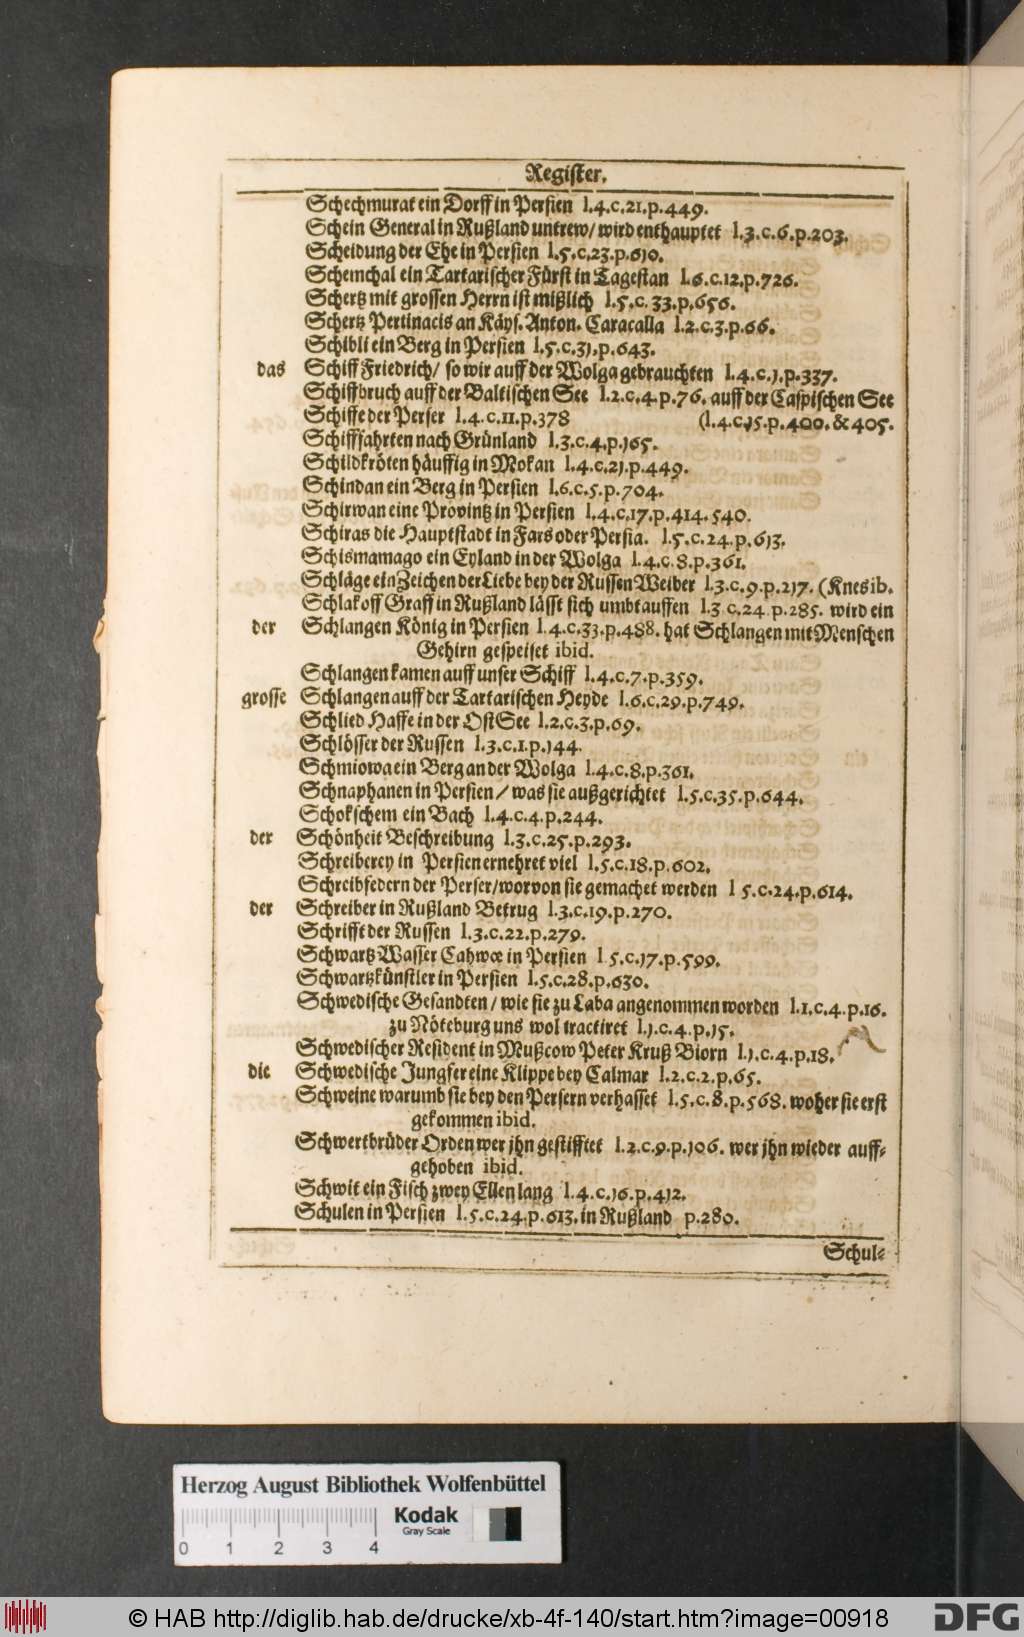 Register.
Schechmurat ein Dorff in Persien l.4.c.21.p.449.
Schein General in Rußland untrew/ wird enthauptet l.3.c.6.p.203.
Scheidung der Ehe in Persien l.5.c.23.p.610.
Schemchal ein Tartarischer Fürst in Tagestan l.6.c.12.p.726.
Schertz mit grossen Herrn ist mißlich l.5.c.33.p.656.
Schertz Pertinacis an Käys. Anton. Caracalla l.2.c.3.p.66.
Schibli ein Berg in Persien l.5.c.31.p.643.
das Schiff Friedrich/ so wir auff der Wolga gebrauchten l.4.c.1.p.337.
Schiffbruch auff der Baltischen See l.2.c.4.p.76. auff der Caspischen See
Schiffe der Perser l.4.c.11.p.378 (l.4.c.15.p.400.&405.
Schifffahrten nach Grünland l.3.c.4.p.165.
Schildkröten häuffig in Mokan l.4.c.21.p.449.
Schindan ein Berg in Persien l.6.c.5.p.704.
Schirwan eine Provintz in Persien l.4.c.17.p.414.540.
Schiras die Hauptstadt in Fars oder Persia. l.5.c.24.p.613.
Schismamago ein Eyland in der Wolga l.4.c.8.p.361.
Schläge ein Zeichen der Liebe bey der Russen Weiber l.3.c.9.p.217. (Knes ib.
Schlakoff Graff in Rußland lässt sich umbtauffen l.3.c.24.p.285. wird ein
der Schlangen König in Persien l.4.c.33.p.488. hat Schlangen mit Menschen
Gehirn gespeiset ibid.
Schlangen kamen auff unser Schiff l.4.c.7.p.359.
grosse Schlangen auff der Tartarischen Heyde l.6.c.29.p.749.
Schlied Haffe in der OstSee l.2.c.3.p.69.
Schlösser der Russen l.3.c.1.p.144.
Schmiowa ein Berg an der Wolga l.4.c.8.p.361.
Schnaphanen in Persien/ was sie außgerichtet l.5.c.35.p.644.
Schokschem ein Bach l.4.c.4.p.244.
der Schönheit Beschreibung l.3.c.25.p.293.
Schreiberey in Persien ernehret viel l.5.c.18.p.602.
Schreibfedern der Perser/ worvon sie gemachet werden l 5.c.24.p.614.
der Schreiber in Rußland Betrug l.3.c.19.p.270.
Schrifft der Russen l.3.c.22.p.279.
Schwartz Wasser Cahwæ in Persien l 5.c.17.p.599.
Schwartzkünstler in Persien l.5.c.28.p.630.
Schwedische Gesandten/ wie sie zu Laba angenommen worden l.1.c.4.p.16.
zu Nöteburg uns wol tractiret l.1.c.4.p.15.
Schwedischer Resident in Mußcow Peter Kruß Biorn l.1.c.4.p.18.
die Schwedische Jungfer eine Klippe bey Calmar l.2.c.2.p.65.
Schweine warumb sie bey den Persern verhasset l.5.c.8.p.568. woher sie erst
gekommen ibid.
Schwertbrüder Orden wer jhn gestifftet l.2.c.9.p.106. wer jhn wieder auff-
gehoben ibid.
Schwit ein Fisch zwey Ellen lang l.4.c.16.p.412.
Schulen in Persien l.5.c.24.p.613. in Rußland p.280.
Schul-
Herzog August Bibliothek Wolfenbüttel
Kodak
Gray Scale
0 1 2 3 4
© HAB http://diglib.hab.de/drucke/xb-4f-140/start.htm?image=00918
DFG